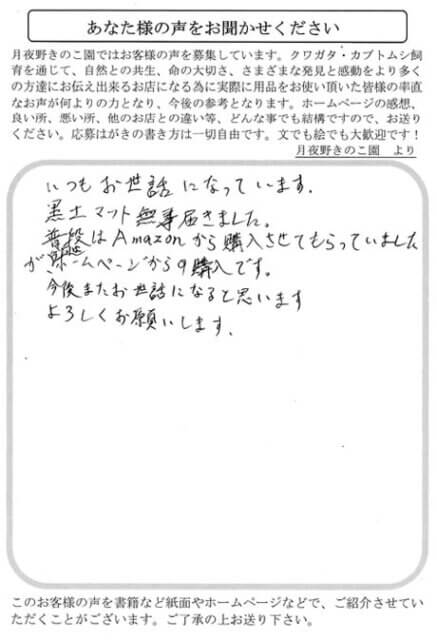 あなた様の声をお聞かせください
月夜野きのこ園ではお客様の声を募集しています。クワガタ・カブトムシ飼
育を通じて、自然との共生、命の大切さ、さまざまな発見と感動をより多く
の方達にお伝え出来るお店になる為に実際に用品をお使い頂いた皆様の率直
なお声が何よりの力となり、今後の参考となります。ホームページの感想、
良い所、悪い所、他のお店との違い等、どんな事でも結構ですので、お送り
ください。応募はがきの書き方は一切自由です。文でも絵でも大歓迎です！
月夜野きのこ園　より
いつもお世話になっています.
黒土マット無事届きました。
普段はAmazonから購入させてもらっていました
が、ホームページからの購入です。
今後またお世話になると思います
よろしくお願いします.
このお客様の声を書籍など紙面やホームページなどで、ご紹介させてい
ただくことがございます。ご了承の上お送り下さい。